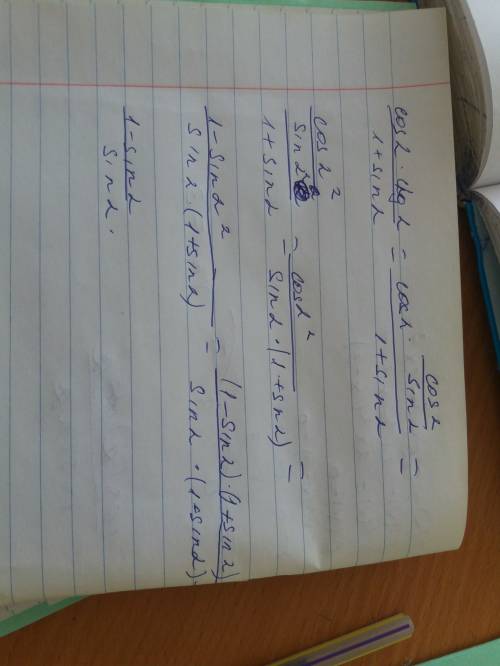 cosα · ctgα / 1+sinα = cosα · cosα/sinα / 1+sinα =
cosα² / sinα / 1+sinα = cosα² / sinα · (1+sinα) =
1-sinα² / sinα · (1+sinα) = (1-sinα) · (1+sinα) / sinα · (1+sinα) =
1-sinα / sinα.